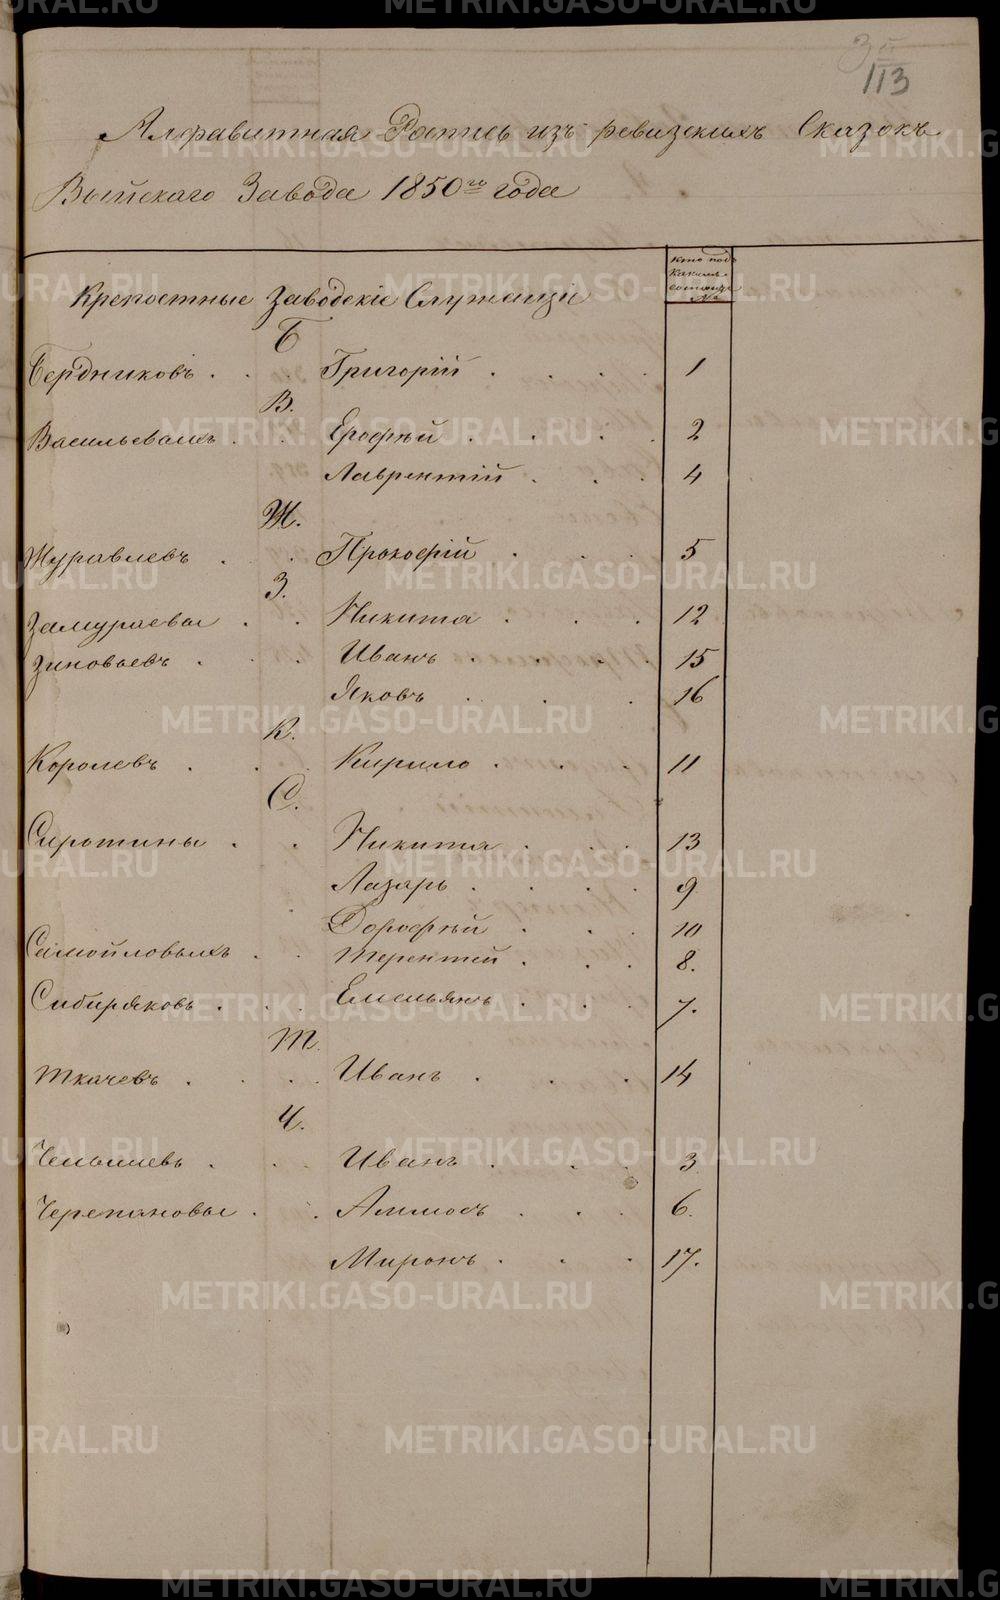 113
Алфавитная Роспись изъ ревизскихъ Сказокъ
Выйскаго Завода 1850го года
кто подъ
какимъ
состоитъ
№
Крепостные Заводскіе Служащіе
Б
Бердниковъ . . . Григорій . . . 1
В.
Васильевыхъ . . Ерофѣй . . . 2
Лаврентій . . . 4
Ж.
Журавлевъ . . Прокофій . . . 5
З.
Замураевы . . Никита . . . 12
Зиновьевъ . . . Иванъ . . . 15
Яковъ . . . 16
К.
Королевъ . . . Кирило . . . 11
С.
Сиротины . . Никита . . . 13
Лазарь . . . 9
Дорофѣй . . . 10
Самойловыхъ . . Терентей . . . 8.
Сибиряковъ . . . Емельянъ . . . 7.
Т.
Ткачевъ . . . Иванъ . . . 14
Ч.
Иванъ . . . 3
Черепановы . . Аммосъ . . . 6.
Миронъ . . . 17.
METRIKI.GASO-URAL.RU